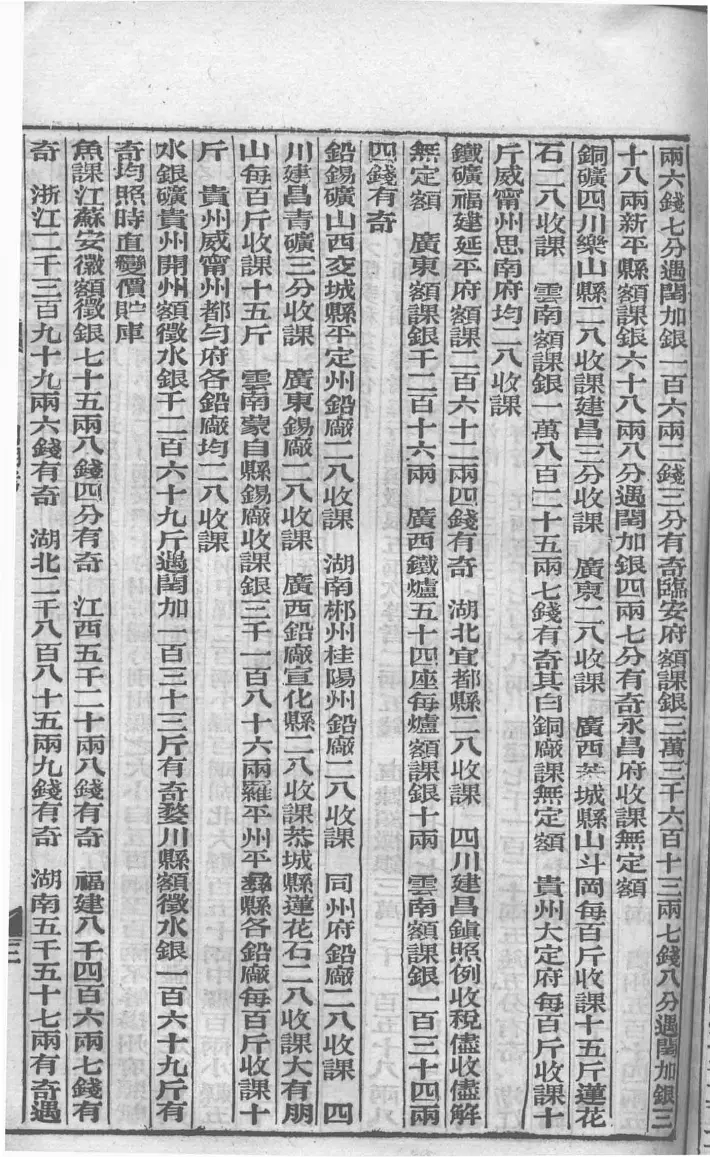 兩六錢七分遇閏加銀一百六兩二錢三分有奇臨安府額課銀三萬三千六百十三兩七錢八分遇閏加銀三
十八兩新平縣額課銀六十八兩八分遇閏加銀四兩七分有奇永昌府收課無定額
銅礦四川樂山縣二八收課建昌三分收課　廣東二八收課　廣西恭城縣山斗岡每百斤收課十五斤蓮花
石二八收課　雲南額課銀一萬八百二十五兩七錢有奇其白銅廠課無定額　貴州大定府每百斤收課十
斤威甯州思南府均二八收課
鐵礦福建延平府額課二百六十二兩四錢有奇　湖北宜都縣二八收課　四川建昌鎮照例收税儘收儘解
無定額　廣東額課銀千二百十六兩　廣西鐵爐五十四座每爐額課銀十兩　雲南額課銀一百三十四兩
四錢有奇
鉛錫礦山西交城縣平定州鉛廠二八收課　湖南郴州桂陽州鉛廠二八收課　同州府鉛錫廠二八收課　四
川建昌青礦三分收課　廣東錫廠二八收課　廣西鉛廠宣化縣二八收課恭城縣蓮花石二八收課大有朋
山每百斤收課十五斤　雲南蒙自縣錫廠收課銀三千一百八十六兩羅平州平彝縣各鉛廠每百斤收課十
斤　貴州威甯州都勻府各鉛廠均二八收課
水銀礦貴州開州額徵水銀千二百六十九斤遇閏加一百三十三斤有奇婺川縣額徵水銀一百六十九斤有
奇均照時直變價貯庫
魚課江蘇安徽額徵銀七十五兩八錢四分有奇　江西五千二十兩八錢有奇　福建八千四百六兩七錢有
奇　浙江二千三百九十九兩六錢有奇　湖北二千八百八十五兩九錢有奇　湖南五千五十七兩有奇遇
三